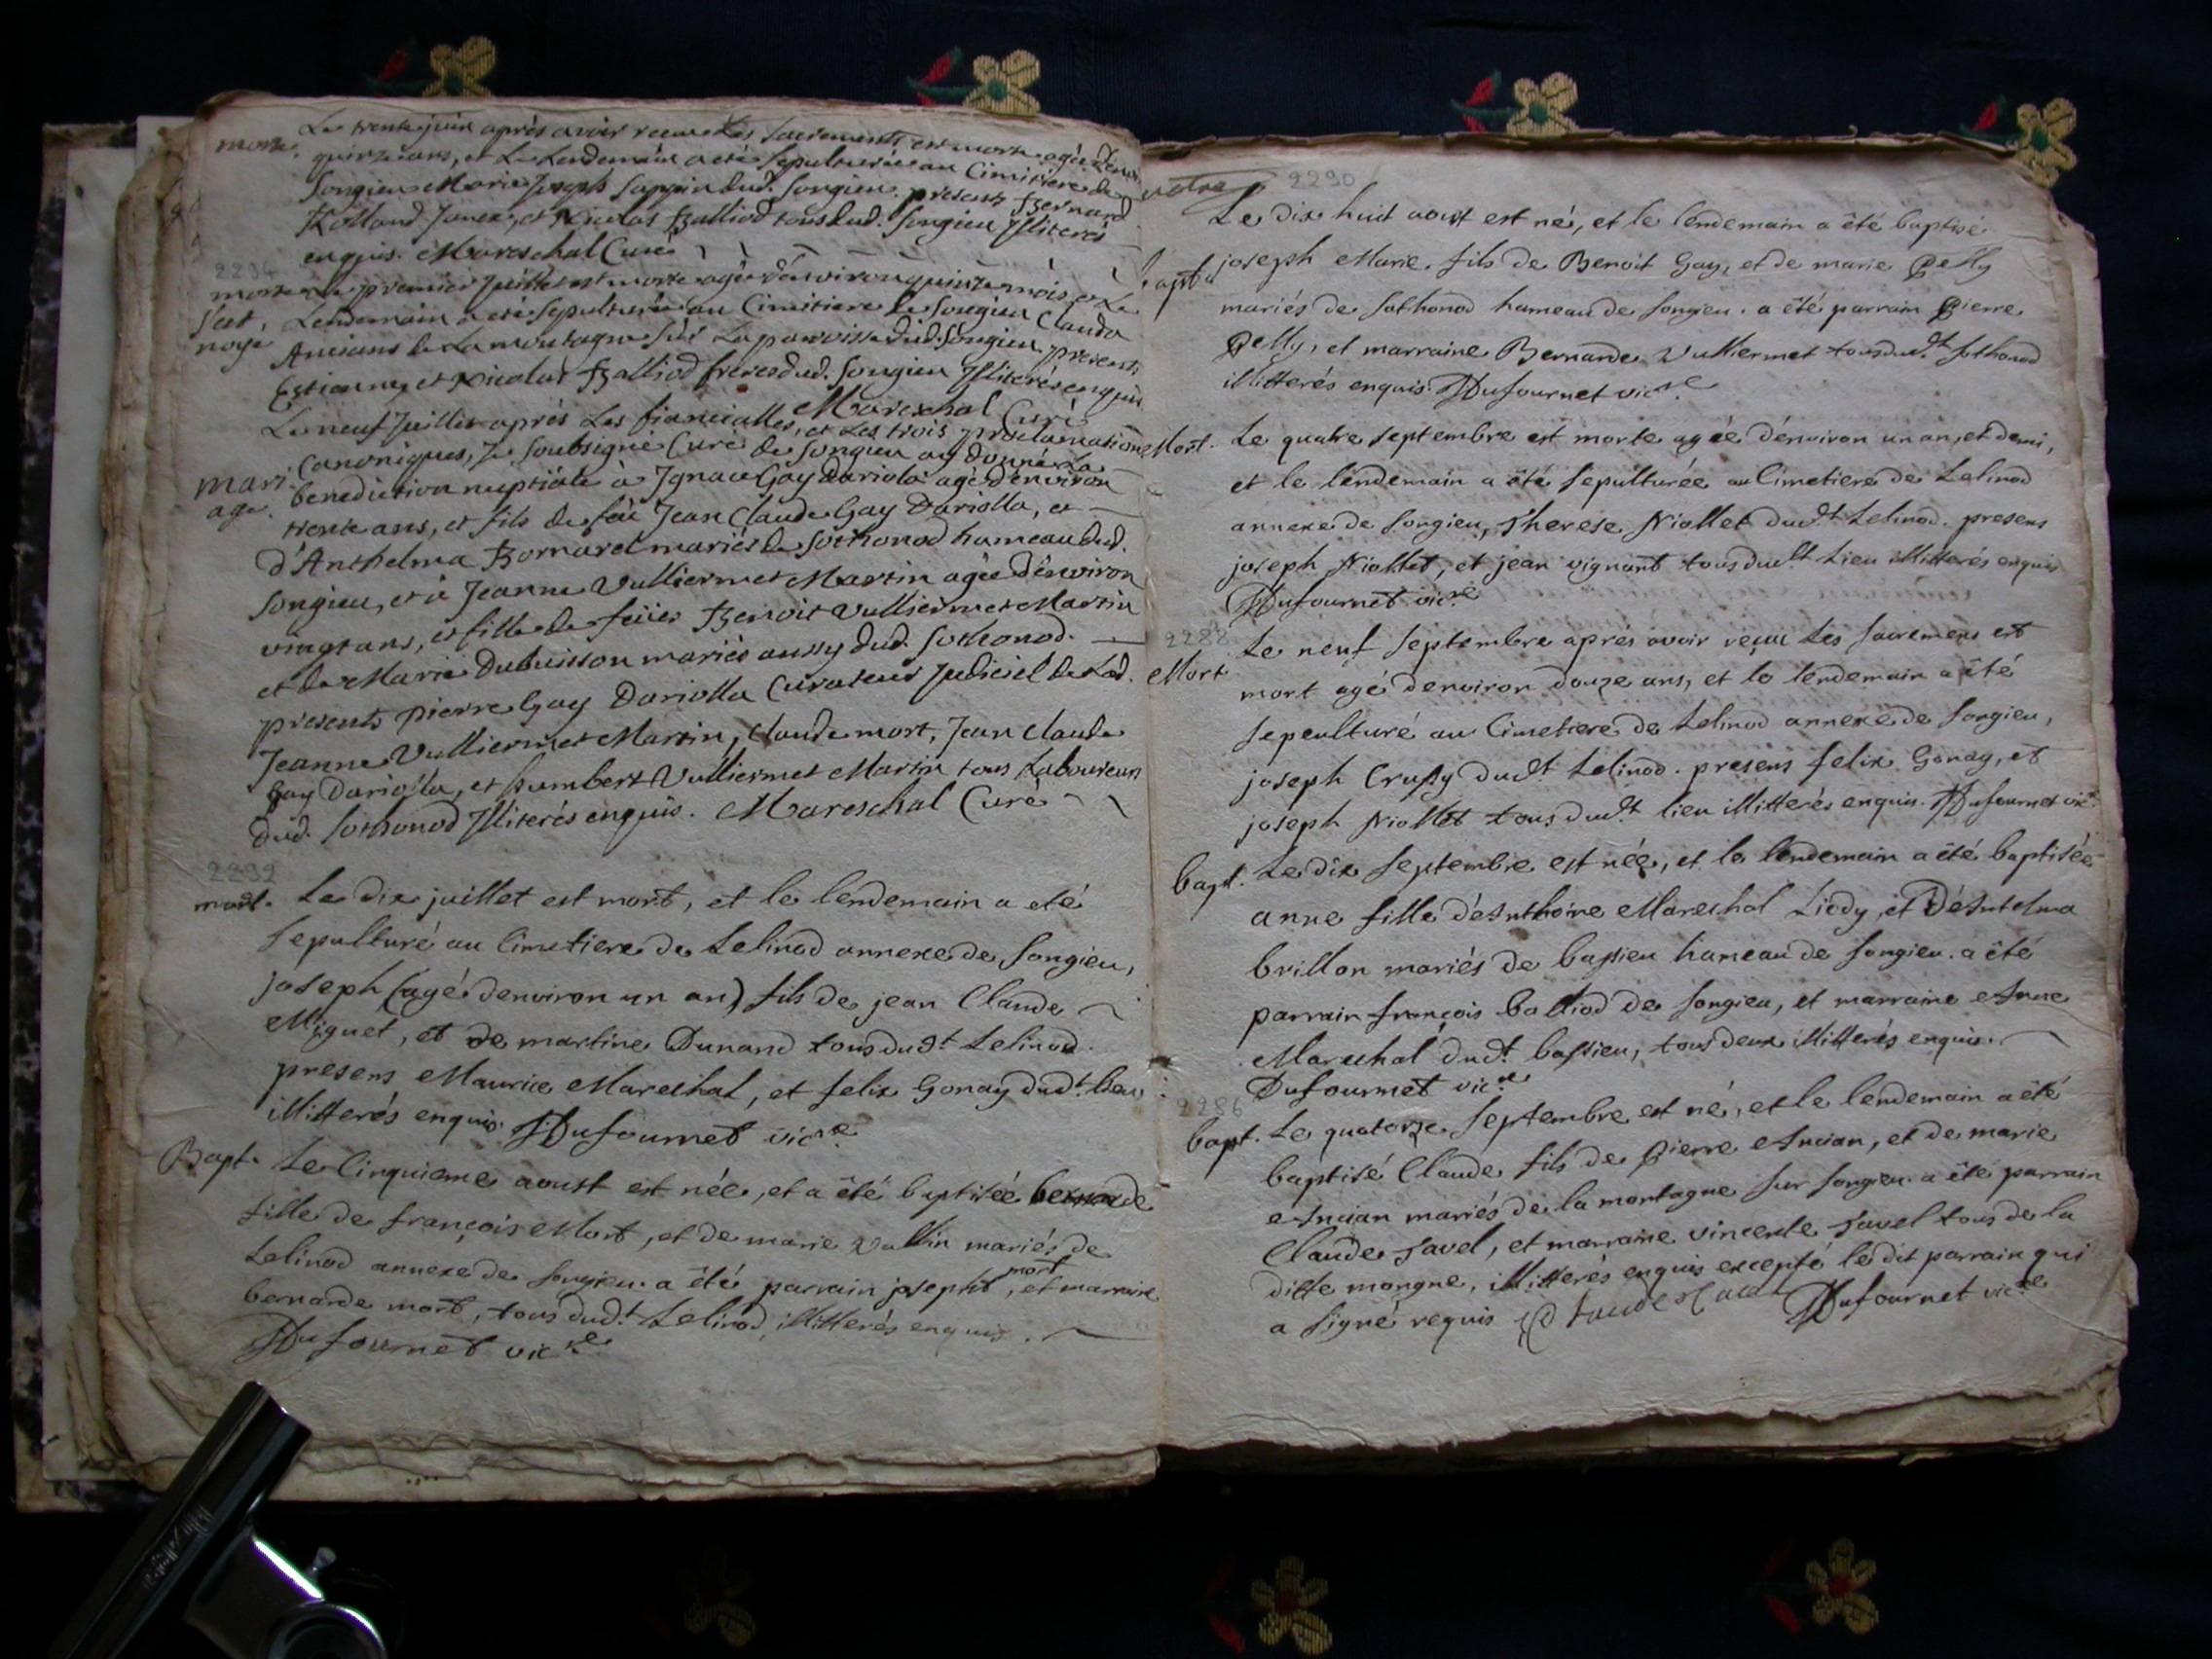 morte. Le trente juin après avoir receu les sacrements est morte agée d'env.
quinze ans, et le lendemain a eté sepulturée au Cimitiere de
Songieu Marie Joseph Sappin dud. Songieu. presents Bernard
Rolland Janex, et Nicolas Balliod tous dud. Songieu Illiterés
enquis. Mareschal Curé
2294
morte Le premier Juillet est morte agée d'environ quinze mois et le
s'est, Lendemain a eté sepulturée au Cimitiere de Songieu Clauda
noyé Ancians de La montagne sur La paroisse dud. Songieu, presents
Estienne, et Nicolas Balliod freres dud. Songieu Illiterés enquis
Mareschal Curé
Le neuf Juillet après Les fiancialles, et Les trois proclamations
Canoniques, Je soubsigné Curé de Songieu ay donné La
mari benediction nuptiale à Ignace Gay Dariola agé d'environ
age. trente ans, et fils de feü Jean Claude Gay Dariolla, et
d'Anthelma Bornarel mariés de Sothonod hameau dud.
Songieu, et à Jeanne Vulliermet Martin agée d'environ
vingt ans, et fille de feües Benoit Vulliermet Martin
et de Marie Dubuisson mariés aussy dud. Sothonod.
presents pierre Gay Dariolla Curateur Judiciel de Lad.
Jeanne Vulliermet Martin, Claude mort, Jean Claude
Gay Dariolla, et humbert Vulliermet Martin tous Laboureurs
dud. Sothonod Illiterés enquis. Mareschal Curé
2292
mort. Le dix juillet est mort, et le lendemain a eté
sepulturé au Cimetiere de Lelinod annexe de Songieu,
joseph (agé denviron un an) fils de jean Claude
Miguet, et de martine Dunand tous dudt Lelinod.
presens Maurice Mareschal, et felix Gonay dudt. lieu
illitterés enquis. Dufournet vicre
Bapt. Le Cinquieme aoust est née, et a été baptisée bernarde
fille de françois Mort, et de marie Vallin mariés de
Lelinod annexe de Songieu. a été parrain joseph mort, et marraine
bernarde mort, tous dudt. Lelinod, illitterés enquis.
Dufournet vicre
2290
Le dix huit aout est né, et le lendemain a été baptisé
bapt. joseph Marie. fils de Benoit Gay, et de marie Pelly
mariés de Sothonod hameau de Songieu. a été parrain Pierre
Pelly, et marraine Bernarde Vulliermet tous dudt Sothonod
illitterés enquis. Dufournet vicre
Mort. Le quatre septembre est morte agée d'environ un an, et demi,
et le lendemain a été sepulturée au Cimetiere de Lelinod
annexe de Songieu, Therese Niollet dudt Lelinod. presens
joseph Niollet, et jean vignant tous dudt Lieu illitterés enquis
Dufournet vicre
2288
Le neuf septembre aprés avoir reçuu les sacremens est
Mort mort agé denviron douze ans, et le lendemain a été
sepeulturé au Cimetiere de Lelinod annexe de Songieu,
joseph Crussy dudt Lelinod. presens felix Gonay, et
joseph Niollet tous dudt lieu illitterés enquis. Dufournet vicre
bapt. Le dix septembre est née, et le lendemain a été baptisée
anne fille d'Anthoine Mareschal Liody, et D'Antelma
brillon mariés de bassieu hameau de Songieu. a été
parrain françois balliod de Songieu, et marraine Anne
Mareschal dudt. bassieu, tous deux illitterés enquis.
Dufournet vicre
2286
bapt. Le quatorze septembre est né, et le lendemain a été
baptisé Claude fils de Pierre Ancian, et de marie
Ancian mariés de la montagne sur Songieu. a été parrain
Claude Favel, et marraine vincente Favel tous de la
ditte mongne, illitterés enquis excepté le dit parrain qui
a signé requis Dufournet vicre